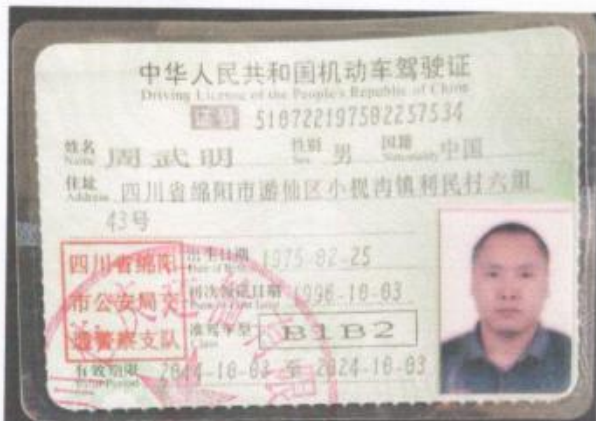 中华人民共和国机动车驾驶证
Driving License of the People's Republic of China
证号 510722197502257534
姓名 Name 周武明 性别 Sex 男 国籍 Nationality 中国
住址 Address 四川省绵阳市游仙区小枧沟镇利民村六组
43号
四川省绵阳
市公安局交
通警察支队
出生日期 Date of Birth 1975-02-25
初次领证日期 1996-10-03
准驾车型 Class B1B2
有效期限 Valid Period 2014-10-03 至 2024-10-03